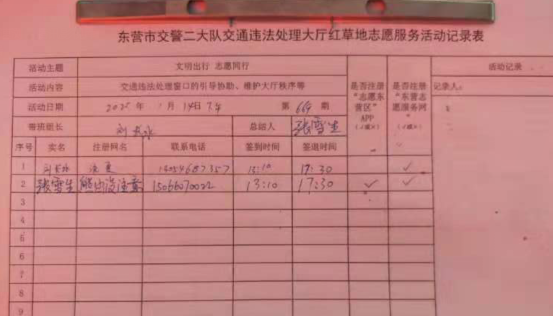 东营市交警二大队交通违法处理大厅红草地志愿服务活动记录表
活动主题 文明出行 志愿同行
活动内容 交通违法处理窗口的引导协助、维护大厅秩序等
活动日期 年 1月 日 第 期
带班组长 总结人 张雪生
是否注册“志愿东营区”APP（√或×）
是否注册“东营志愿服务网”（√或×）
活动记录
记录人：
序号 实名 注册网名 联系电话 签到时间 签退时间
1 17:30 ✓
2 张雪生 15066070022 13:10 17:30 ✓ ✓
3
4
5
6
7
8
9